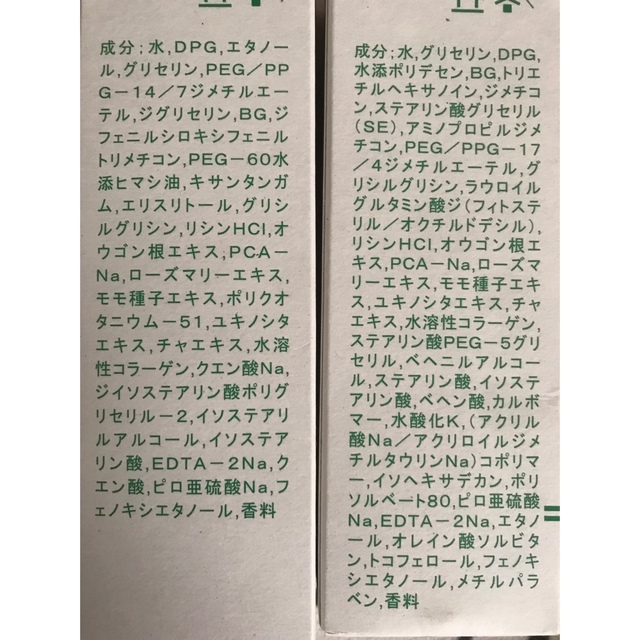 成分;水,DPG,エタノー
ル,グリセリン,PEG/PP
G-14/7ジメチルエー
テル,ジグリセリン,BG,ジ
フェニルシロキシフェニル
トリメチコン,PEG-60水
添ヒマシ油,キサンタンガ
ム,エリスリトール,グリシ
ルグリシン,リシンHCl,オ
ウゴン根エキス,PCA-
Na,ローズマリーエキス,
モモ種子エキス,ポリクオ
タニウム-51,ユキノシタ
エキス,チャエキス,水溶
性コラーゲン,クエン酸Na,
ジイソステアリン酸ポリグ
リセリル-2,イソステアリ
ルアルコール,イソステア
リン酸,EDTA-2Na,ク
エン酸,ピロ亜硫酸Na,フ
ェノキシエタノール,香料
成分;水,グリセリン,DPG,
水添ポリデセン,BG,トリエ
チルヘキサノイン,ジメチコ
ン,ステアリン酸グリセリル
(SE),アミノプロピルジメ
チコン,PEG/PPG-17
/4ジメチルエーテル,グ
リシルグリシン,ラウロイル
グルタミン酸ジ(フィトステ
リル/オクチルドデシル),
リシンHCl,オウゴン根エ
キス,PCA-Na,ローズマ
リーエキス,モモ種子エキ
ス,ユキノシタエキス,チャ
エキス,水溶性コラーゲン,
ステアリン酸PEG-5グリ
セリル,ベヘニルアルコー
ル,ステアリン酸,イソステ
アリン酸,ベヘン酸,カルボ
マー,水酸化K,(アクリル
酸Na/アクリロイルジメ
チルタウリンNa)コポリマ
ー,イソヘキサデカン,ポリ
ソルベート80,ピロ亜硫酸
Na,EDTA-2Na,エタノ
ール,オレイン酸ソルビタ
ン,トコフェロール,フェノキ
シエタノール,メチルパラ
ベン,香料